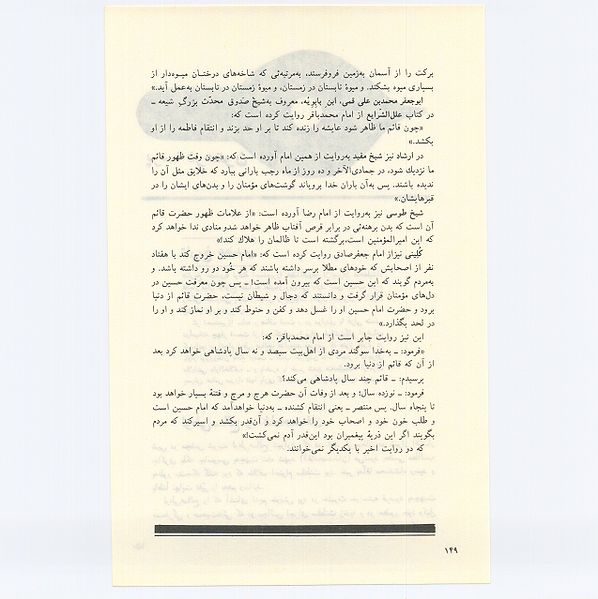 برکت را از آسمان به‌زمین فروفرستد، به‌مرتبه‌ئی که شاخه‌های درختان میوه‌دار از
بسیاری میوه بشکند. و میوهٔ تابستان در زمستان، و میوهٔ زمستان در تابستان به‌عمل آید.»
ابوجعفر محمدبن علی قمی، ابن بابویه، معروف به‌شیخ صدوق محدّث بزرگ شیعه ــ
در کتاب علل‌الشّرایع از امام محمدباقر روایت کرده است که:
«چون قائم ما ظاهر شود عایشه را زنده کند تا بر او حد بزند و انتقام فاطمه را از او
بکشد.»
در ارشاد نیز شیخ مفید به‌روایت از همین امام آورده است که: «چون وقت ظهور قائم
ما نزدیك شود، در جمادی‌الآخر و ده روز از ماه رجب بارانی ببارد که خلایق مثل آن را
ندیده باشند. پس به‌آن باران خدا برویاند گوشت‌های مؤمنان را و بدن‌های ایشان را در
قبرهایشان.»
شیخ طوسی نیز به‌روایت از امام رضا آورده است: «از علامات ظهور حضرت قائم
آن است که بدن برهنه‌ئی در برابر قرص آفتاب ظاهر خواهد شدو منادی ندا خواهد کرد
که این امیرالمؤمنین است،برگشته است تا ظالمان را هلاك کند!»
کُلینی نیزاز امام جعفرصادق روایت کرده است که: «امام حسین خروج کند با هفتاد
نفر از اصحابش که خودهای مطلا برسر داشته باشند که هر خُود دو رو داشته باشد. و
به‌مردم گویند که این حسین است که بیرون آمده است! ــ پس چون معرفت حسین در
دل‌های مؤمنان قرار گرفت و دانستند که دجال و شیطان نیست، حضرت قائم از دنیا
برود و حضرت امام حسین او را غسل دهد و کفن و حنوط کند و بر او نماز کند و او را
در لحد بگذارد.»
این نیز روایت جابر است از امام محمدباقر، که:
«فرمود: ــ به‌خدا سوگند مردی از اهل‌بیت سیصد و نه سال پادشاهی خواهد کرد بعد
از آن که قائم از دنیا برود.
پرسیدم: ــ قائم چند سال پادشاهی می‌کند؟
فرمود: ــ نوزده سال؛ و بعد از وفات آن حضرت هرج و مرج و فتنهٔ بسیار خواهد بود
تا پنجاه سال. پس منتصر ــ یعنی انتقام کشنده ــ به‌دنیا خواهدآمد که امام حسین است
و طلب خون خود و اصحاب خود را خواهد کرد و آن‌قدر بکشد و اسیرکند که مردم
بگویند اگر این ذریهٔ پیغمبران بود این‌قدر آدم نمی‌کشت!»
که دو روایت اخیر با یکدیگر نمی‌خوانند.
۱۴۹